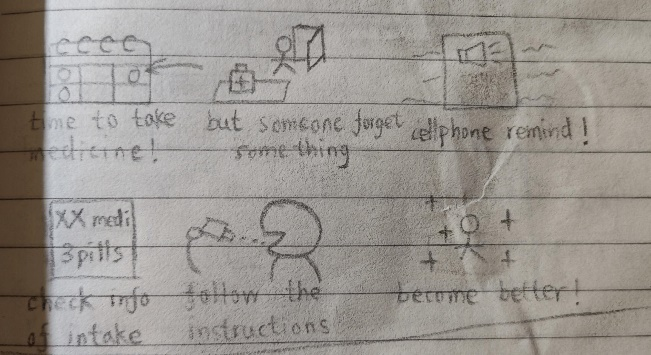 time to take
medicine!
but someone forget
something
cellphone remind!
XX medi
3pills
check info
of intake
follow the
instructions
become better!